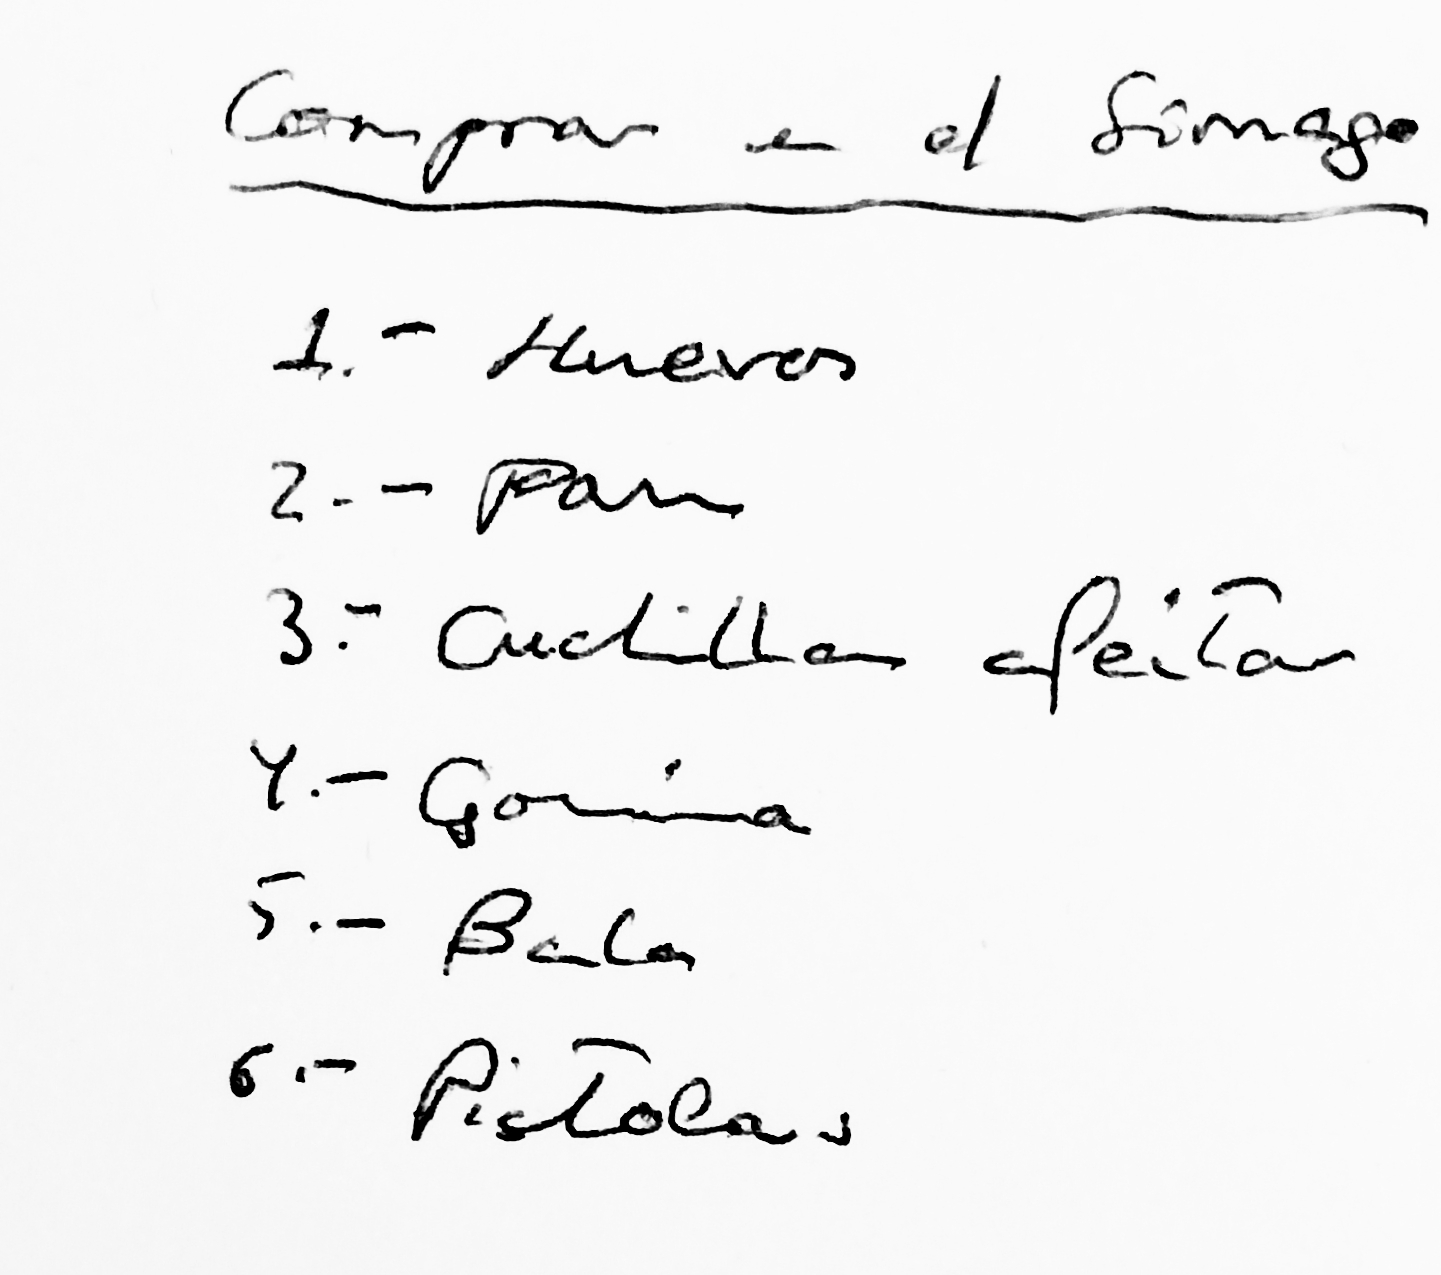 Comprar en el Simago
1.- Huevos
2.- Pan
3.- Cuchillas afeitar
4.- Gomina
5.- Balas
6.- Pistolas